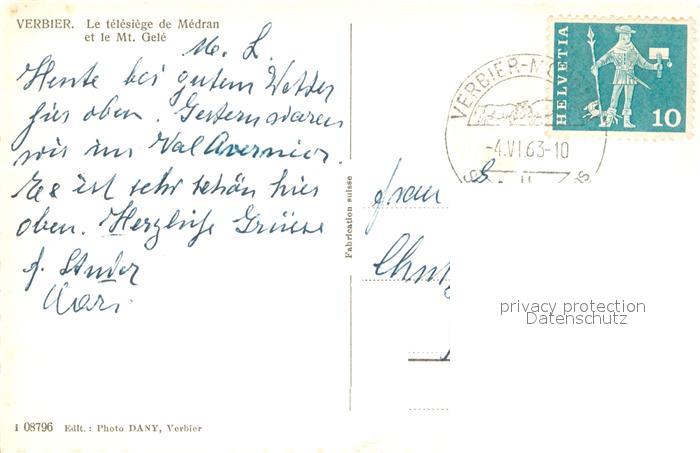 VERBIER. Le télésiège de Médran
et le Mt. Gelé
M. L.
Heute bei gutem Wetter
hier oben. Gestern waren
wir im Val
Es ist sehr schön hier
oben. Herzliche Grüsse
Fabrication suisse
HELVETIA
10
VERBIER
-4.VI.63-10
Frau S
privacy protection
Datenschutz
1 08796 Edit.: Photo DANY, Verbier